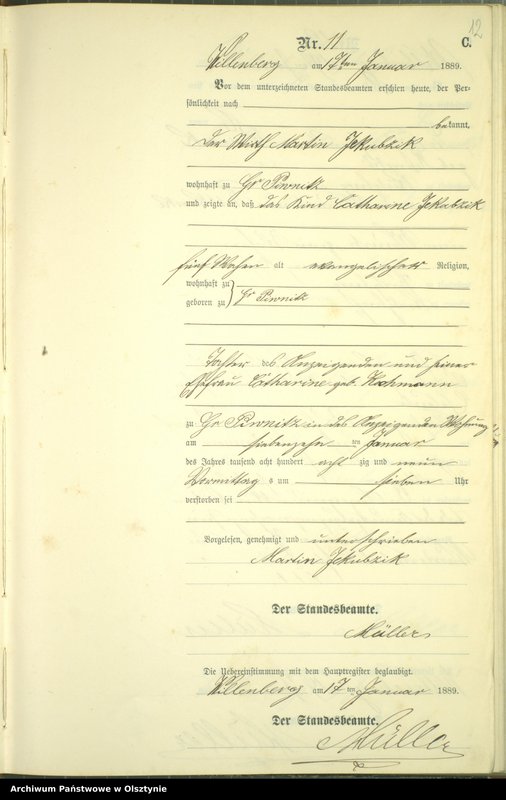 12
Nr. 11 C.
Willenberg am 17ten Januar 1889.
Vor dem unterzeichneten Standesbeamten erschien heute, der Per-
sönlichkeit nach
bekannt,
der Wirth Martin Jekubzik
wohnhaft zu Gr Piwnitz
und zeigte an, daß das Kind Catharine Jekubzik
fünf Wochen alt evangelischer Religion,
wohnhaft zu
geboren zu } Gr Piwnitz
Tochter des Anzeigenden und seiner
Ehefrau Catharine geb.
zu Gr Piwnitz in des Anzeigenden Wohnung
am siebenzehn ten Januar
des Jahres tausend acht hundert acht zig und neun
Vormittag s um sieben Uhr
verstorben sei
Vorgelesen, genehmigt und unterschrieben
Martin Jekubzik
Der Standesbeamte.
Müller
Die Uebereinstimmung mit dem Hauptregister beglaubigt.
Willenberg am 17 ten Januar 1889.
Der Standesbeamte.
Müller
Archiwum Państwowe w Olsztynie